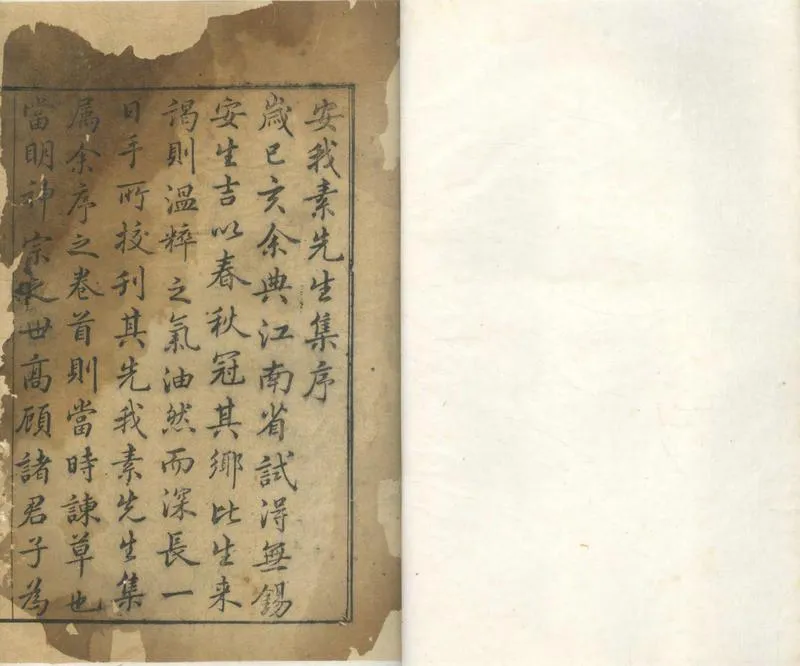 安我素先生集序
嵗已亥余典江南省試淂無錫
安生吉以春秋冠其鄉比生来
謁則溫粹之氣油然而深長一
日手所挍刋其先我素先生集
属余序之卷首則當時諫草也
當明神宗之世高顧諸君子為